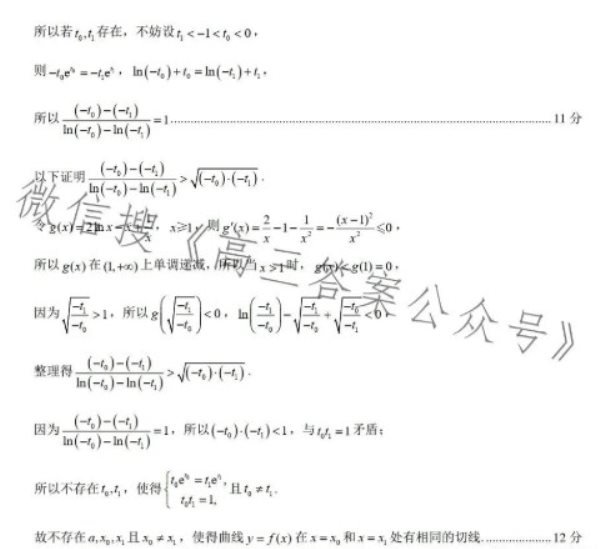 所以若t₀,t₁存在，不妨设t₁<-1<t₀<0，
则-t₀e^{t₀}=-t₁e^{t₁}，ln(-t₀)+t₀=ln(-t₁)+t₁，
所以\frac{(-t₀)-(-t₁)}{ln(-t₀)-ln(-t₁)}=1 …… 11 分
以下证明\frac{(-t₀)-(-t₁)}{ln(-t₀)-ln(-t₁)}>\sqrt{(-t₀)·(-t₁)}．
令g(x)=2ln x-x+\frac{1}{x}，x≥1，则g′(x)=\frac{2}{x}-1-\frac{1}{x²}=-\frac{(x-1)²}{x²}≤0，
所以g(x)在(1,+∞)上单调递减，所以当x>1时，g(x)<g(1)=0，
因为\sqrt{\frac{-t₁}{-t₀}}>1，所以g(\sqrt{\frac{-t₁}{-t₀}})<0，ln(\frac{-t₁}{-t₀})-\sqrt{\frac{-t₁}{-t₀}}+\sqrt{\frac{-t₀}{-t₁}}<0，
整理得\frac{(-t₀)-(-t₁)}{ln(-t₀)-ln(-t₁)}>\sqrt{(-t₀)·(-t₁)}．
因为\frac{(-t₀)-(-t₁)}{ln(-t₀)-ln(-t₁)}=1，所以(-t₀)·(-t₁)<1，与t₀t₁=1矛盾；
所以不存在t₀,t₁，使得{t₀e^{t₀}=t₁e^{t₁}, t₀t₁=1, 且t₀≠t₁．
故不存在a,x₀,x₁且x₀≠x₁，使得曲线y=f(x)在x=x₀和x=x₁处有相同的切线 …… 12 分
微信搜《高三答案公众号》